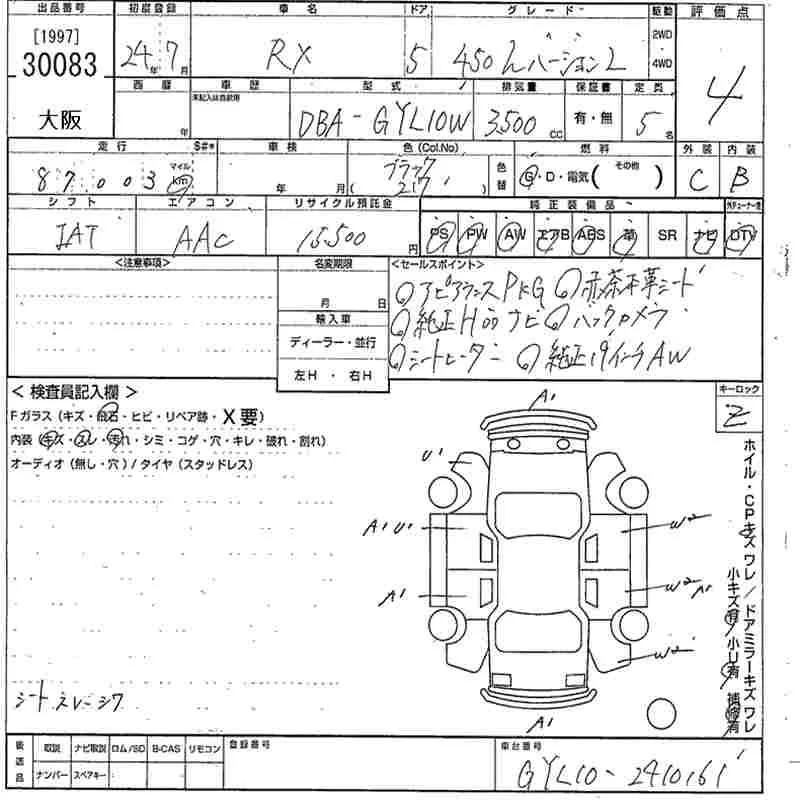 出品番号 初度登録 車名 ドア グレード 駆動 評価点
[1997] 30083 大阪
24年 7月 RX 5 450hバージョンL 2WD 4WD 4
西暦 車歴 型式 排気量 保証書 定員
年 未記入は自家用 DBA-GYL10W 3500cc 有・無 5名
走行 S#* 車検 色 (Col.No) 燃料 外装 内装
87,003 マイル km 年 月( ブラック 217 ) 色替 G・D・電気( その他 ) C B
シフト エアコン リサイクル預託金 純正装備品
IAT AAC 15,500円 PS PW AW エアB ABS 革 SR ナビ DTV
<注意事項> 名変期限 <セールスポイント>
月 日
輸入車
ディーラー・並行
左H・右H
アピアランスPKG 赤茶本革シート
純正HDDナビ バックカメラ
シートヒーター 純正19インチAW
< 検査員記入欄 > キーロック
Fガラス (キズ・飛石・ヒビ・リペア跡・X要) Z
内装 (キズ・スレ・汚れ・シミ・コゲ・穴・キレ・破れ・割れ)
オーディオ (無し・穴) / タイヤ (スタッドレス)
A1
U1
A1 U1 W2
A1 W2 A1
W2
A1
ホイル・CPキズ ワレ / ドアミラーキズ ワレ
小キズ有 / 小U有 補修有
シートスレ・シワ
後送品 取説 ナビ取説 ロム/SD B-CAS リモコン 登録番号 車台番号
ナンバー スペアキー GYL10-2410161